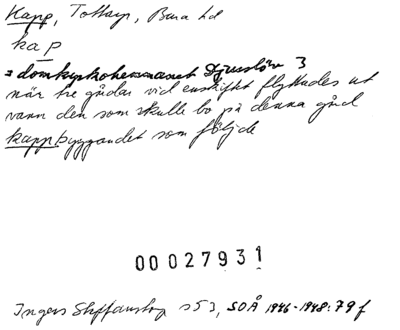 Kapp, Tottarp, Bara hd
kap
= domkyrkohemmanet Djurslöv 3
när tre gårdar vid enskiftet flyttades ut
vann den som skulle bo på denna gård
kappbyggandet som följde
00 027931
Ingers s 53, SOÅ 1946-1948: 79 f